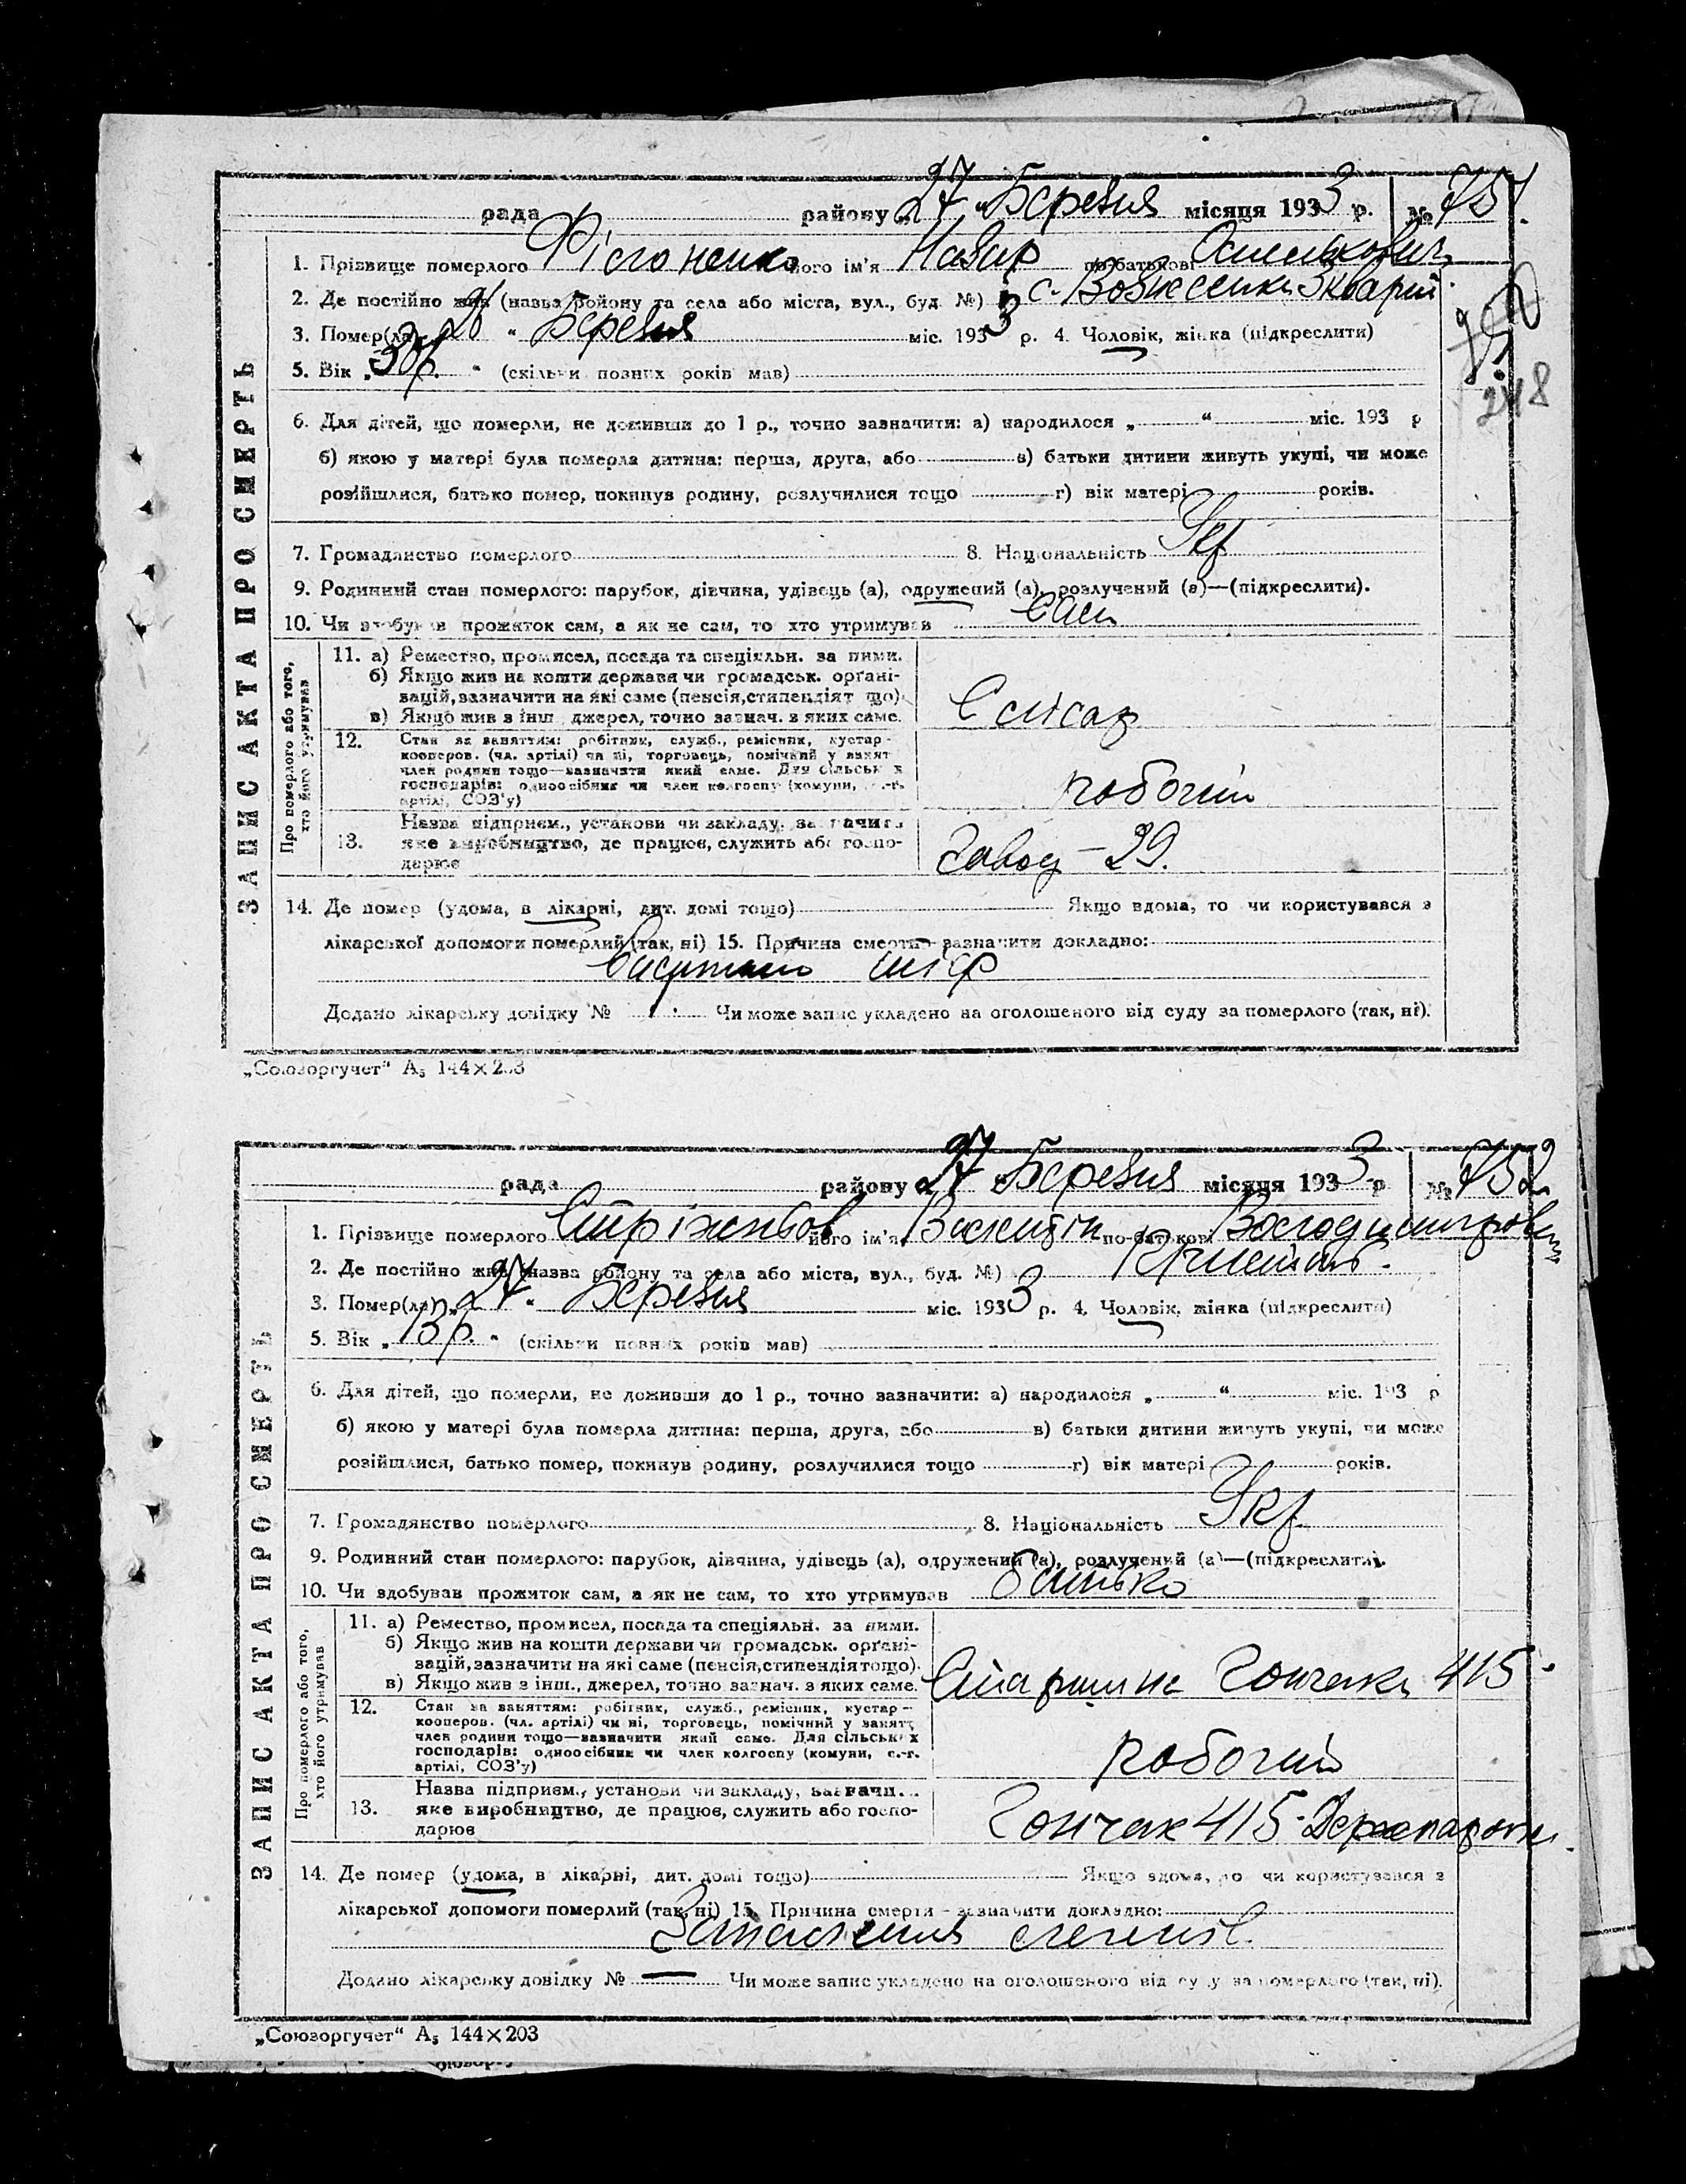 рада району 27 Березня місяця 1933 р. № 751.
1. Прізвище померлого Філоненко його ім'я Назар по батькові Омелькович
2. Де постійно жив (назва району та села або міста, вул., буд. №) с. Вознесенка 3 кварт.
3. Помер(ла) „26“ Березня міс. 1933 р. 4. Чоловік, жінка (підкреслити)
5. Вік „30 р.“ (скільки повних років мав)
248
6. Для дітей, що померли, не доживши до 1 р., точно зазначити: а) народилося „ “ міс. 193 р
б) якою у матері була померла дитина: перша, друга, або в) батьки дитини живуть укупі, чи може
розійшлися, батько помер, покинув родину, розлучилися тощо г) вік матері років.
7. Громадянство померлого 8. Національність Укр
9. Родинний стан померлого: парубок, дівчина, удівець (а), одружений (а), розлучений (а)—(підкреслити).
10. Чи здобував прожиток сам, а як не сам, то хто утримував Сам
ЗАПИС АКТА ПРО СМЕРТЬ
Про померлого або того, хто його утримував
11. а) Ремество, промисел, посада та спеціяльн. за ними.
б) Якщо жив на кошти держави чи громадськ. орґані-
зацій, зазначити на які саме (пенсія, стипендія тощо).
в) Якщо жив з інш. джерел, точно зазнач. з яких саме.
Слюсар
12. Стан за заняттям: робітник, служб., ремісник, кустар-
кооперов. (чл. артілі) чи ні, торговець, помічний у занят.
член родини тощо—зазначити який саме. Для сільських
господарів: одноосібник чи член колгоспу (комуни, с.-г.
артілі, СОЗ'у)
робочий
13. Назва підприєм., установи чи закладу, зазначити
яке виробництво, де працює, служить або госпо-
дарює
Завод – 29.
14. Де помер (удома, в лікарні, дит. домі тощо) Якщо вдома, то чи користувався з
лікарської допомоги померлий (так, ні) 15. Причина смерти—зазначити докладно:
Висипний тіф
Додано лікарську довідку № Чи може запис укладено на оголошеного від суду за померлого (так, ні).
„Союзоргучет“ А₅ 144×203
рада району 27 Березня місяця 1933 р № 752
1. Прізвище померлого Стріжньов його ім'я Валентін по батькові Володимирович
2. Де постійно жив (назва району та села або міста, вул., буд. №)
3. Помер(ла) „27“ Березня міс. 1933 р. 4. Чоловік, жінка (підкреслити)
5. Вік „13 р.“ (скільки повних років мав)
6. Для дітей, що померли, не доживши до 1 р., точно зазначити: а) народилося „ “ міс. 193 р
б) якою у матері була померла дитина: перша, друга, або в) батьки дитини живуть укупі, чи може
розійшлися, батько помер, покинув родину, розлучилися тощо г) вік матері років.
7. Громадянство померлого 8. Національність Укр.
9. Родинний стан померлого: парубок, дівчина, удівець (а), одружений (а), розлучений (а)—(підкреслити).
10. Чи здобував прожиток сам, а як не сам, то хто утримував батько
ЗАПИС АКТА ПРО СМЕРТЬ
Про померлого або того, хто його утримував
11. а) Ремество, промисел, посада та спеціяльн. за ними.
б) Якщо жив на кошти держави чи громадськ. орґані-
зацій, зазначити на які саме (пенсія, стипендія тощо).
в) Якщо жив з інш., джерел, точно зазнач. з яких саме.
Старшина 415
12. Стан за заняттям: робітник, служб., ремісник, кустар-
кооперов. (чл. артілі) чи ні, торговець, помічний у занятт.
член родини тощо—зазначити який саме. Для сільських
господарів: одноосібник чи член колгоспу (комуни, с.-г.
артілі, СОЗ'у)
робочий
13. Назва підприєм., установи чи закладу, зазначи...
яке виробництво, де працює, служить або госпо-
дарює
415
14. Де помер (удома, в лікарні, дит. домі тощо) Якщо вдома, то чи користувався з
лікарської допомоги померлий (так, ні) 15. Причина смерти—зазначити докладно:
Запалення легенів.
Додано лікарську довідку № — Чи може запис укладено на оголошеного від суду за померлого (так, ні).
„Союзоргучет“ А₅ 144×203